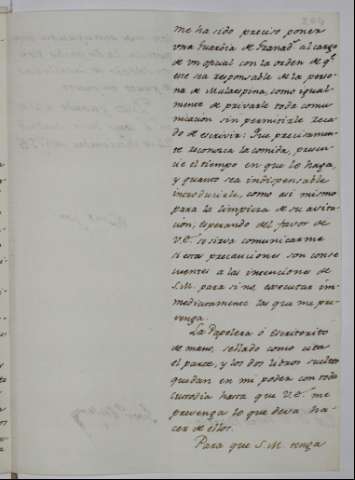 me ha sido preciso poner
una Guardia de Granad.s al cargo
de un oficial con la orden de q.e
ese sea responsable de la perso-
na de Malaspina, como igual-
mente de privarle toda comu-
nicacion sin permitirle reca-
do de escrivir: Que precisamen-
te reconozca la comida, presen-
cie el tiempo en que lo haga,
y quanto sea indispensable
introducirle, como asi mismo
para la limpieza de su avita-
cion, esperando del favor de
V.E. se sirva comunicarme
si estas precauciones son conse-
cuentes a las intenciones de
S.M. para si no, executar im-
mediatamente las que me pre-
venga.
La Papelera ó Escritorito
de mano, sellado como cita
el parte, y los dos libros sueltos
quedan en mi poder con toda
custodia hasta que V.E. me
prevenga lo que deva ha-
cer de ellos.
Para que S.M. tenga